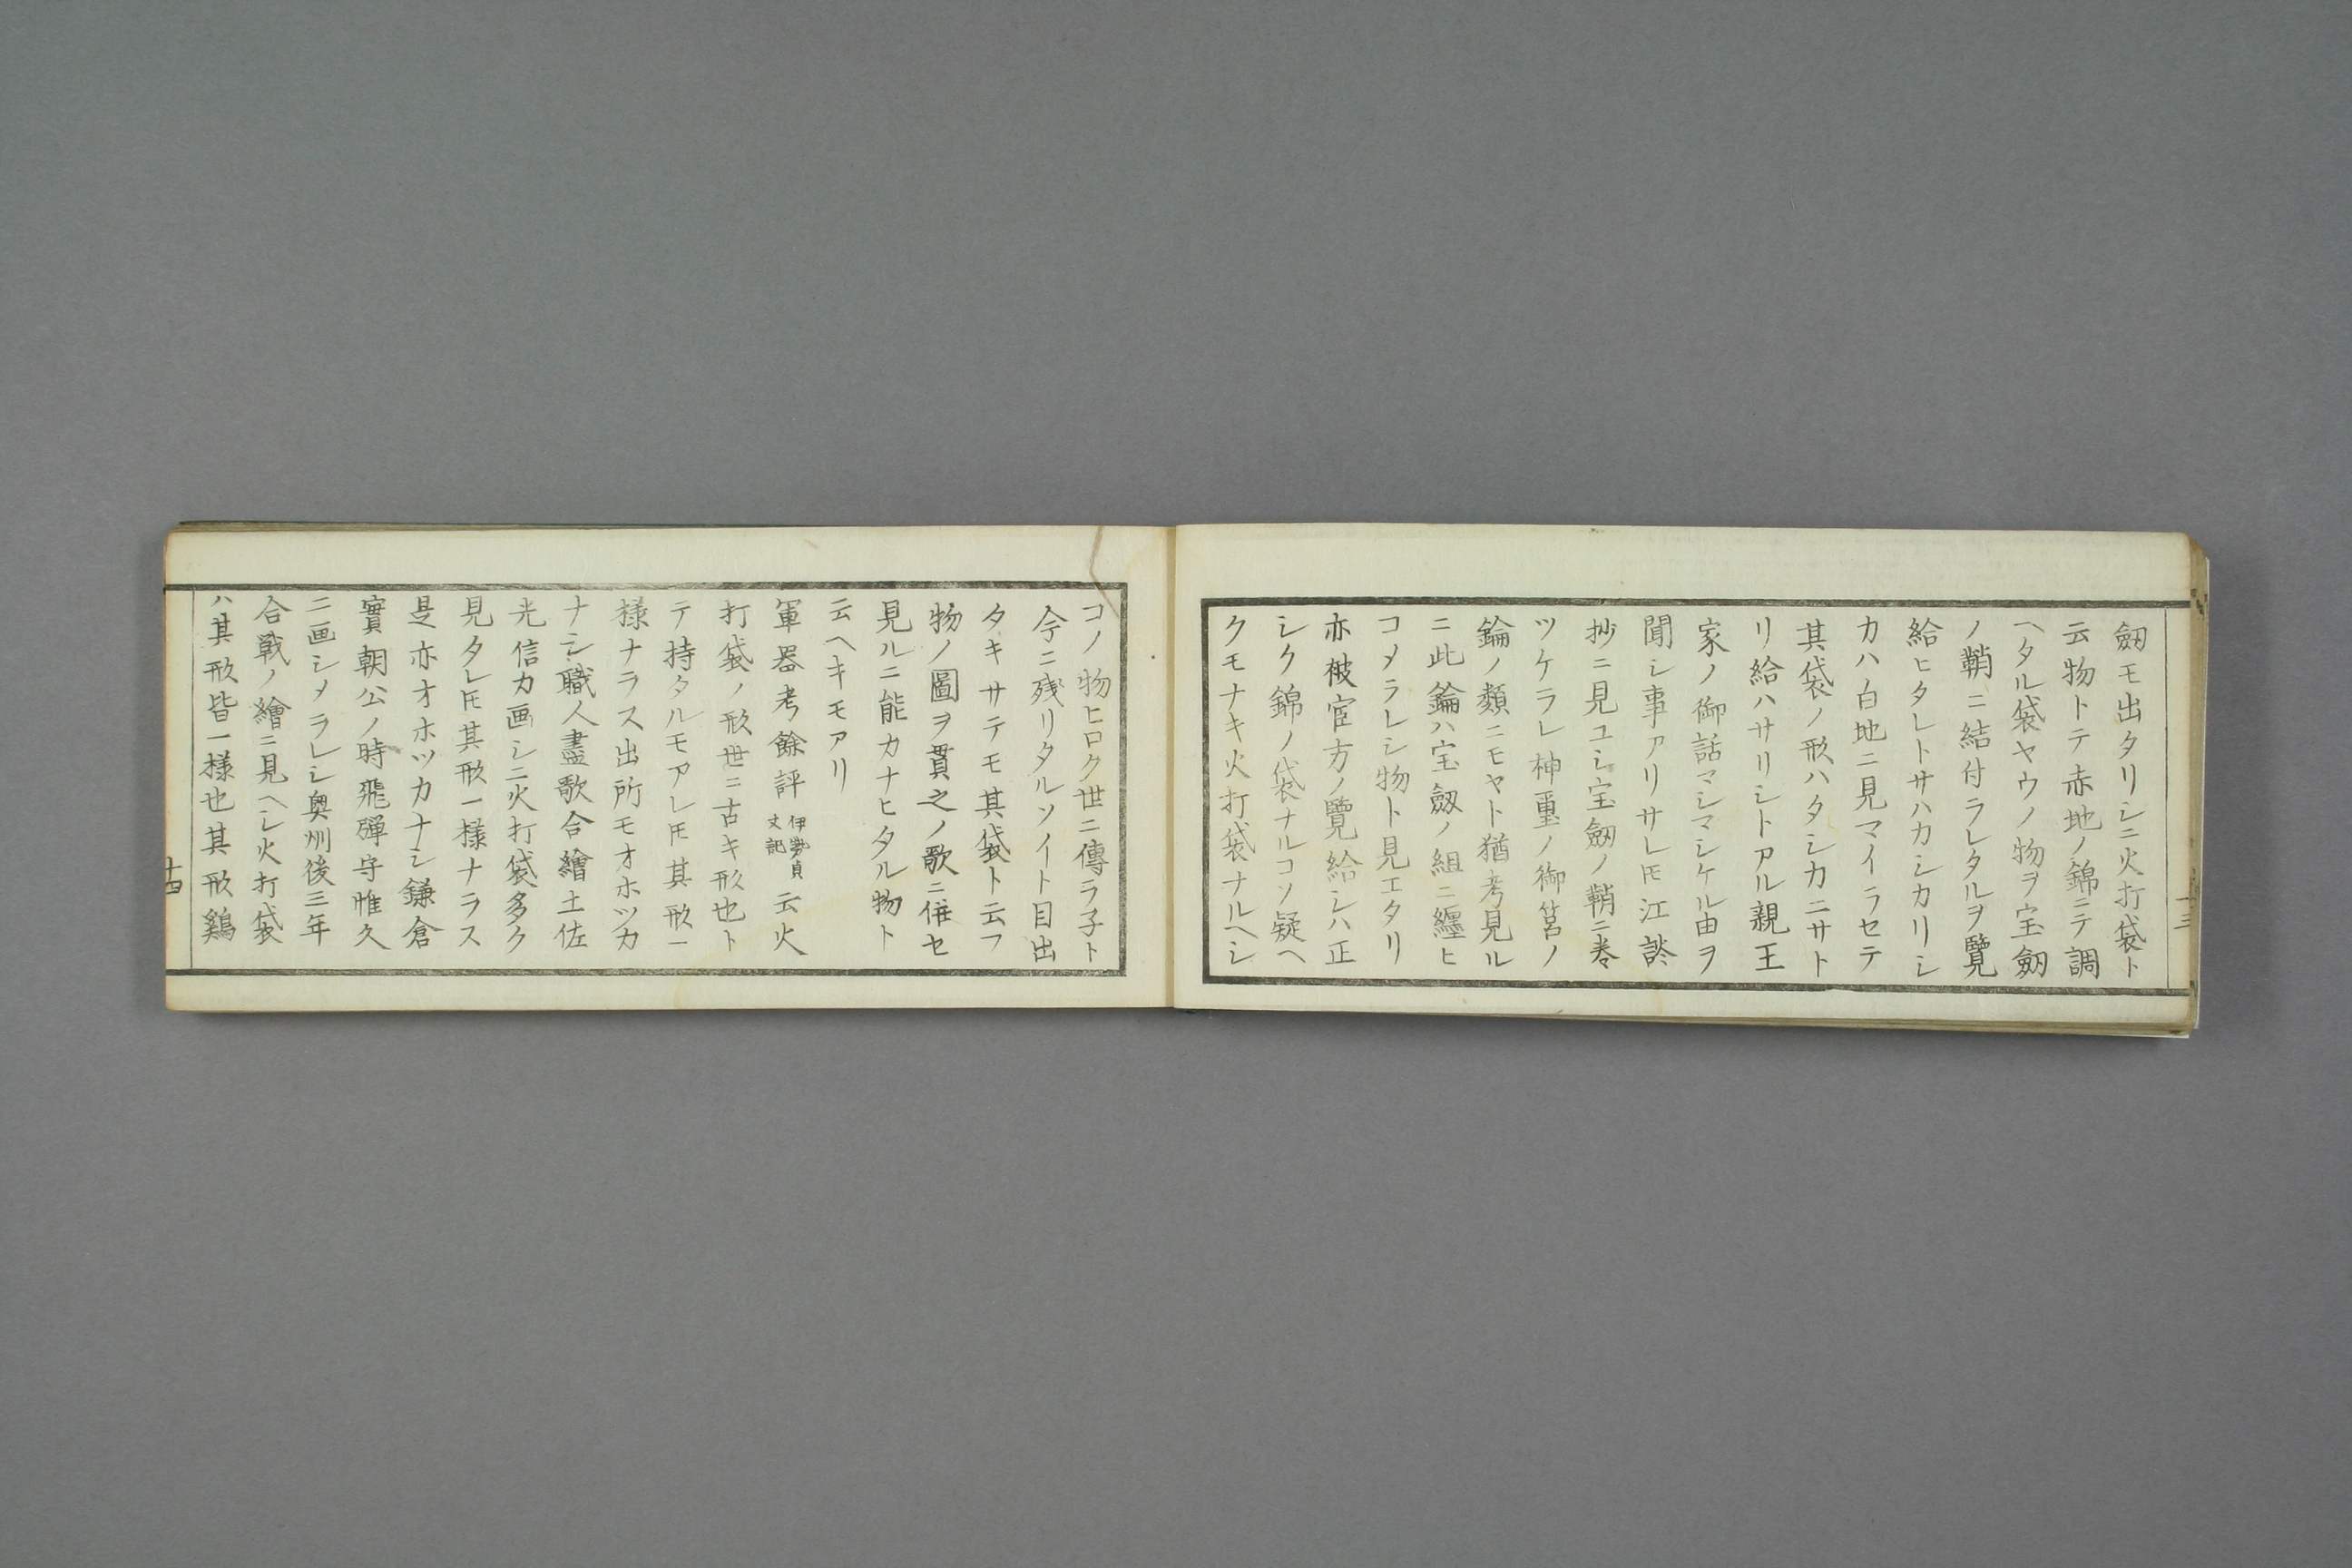 劔モ出タリシニ火打袋ト
云物トテ赤地ノ錦ニテ調
ヘタル袋ヤウノ物ヲ宝劔
ノ鞘ニ結付ラレタルヲ覽
給ヒタレトサハカシカリシ
カハ白地ニ見マイラセテ
其袋ノ形ハタシカニサト
リ給ハサリシトアル親王
家ノ御話マシマシケル由ヲ
聞シ事アリサレ𪜈江談
抄ニ見ユシ宝劔ノ鞘ニ巻
ツケラレ神璽ノ御筥ノ
錀ノ類ニモヤト猶考見ル
ニ此錀ハ宝劔ノ組ニ纏ヒ
コメラレシ物ト見エタリ
亦被官方ノ覽給シハ正
シク錦ノ袋ナルコソ疑ヘ
クモナキ火打袋ナルヘシ
十三
コノ物ヒロク世ニ傳ラ子ト
今ニ残リタルソイト目出
タキサテモ其袋ト云フ
物ノ圖ヲ貫之ノ歌ニ併セ
見ルニ能カナヒタル物ト
云ヘキモアリ
軍器考餘評 伊勢貞丈記 云火
打袋ノ形世ニ古キ形也ト
テ持タルモアレ𪜈其形一
様ナラス出所モオホツカ
ナシ職人盡歌合繪土佐
光信カ画シニ火打袋多ク
見タレ𪜈其形一様ナラス
是亦オホツカナシ鎌倉
實朝公ノ時飛騨守惟久
ニ画シメラレシ奥州後三年
合戦ノ繪ニ見ヘシ火打袋
ハ其形皆一様也其形鷄
十四